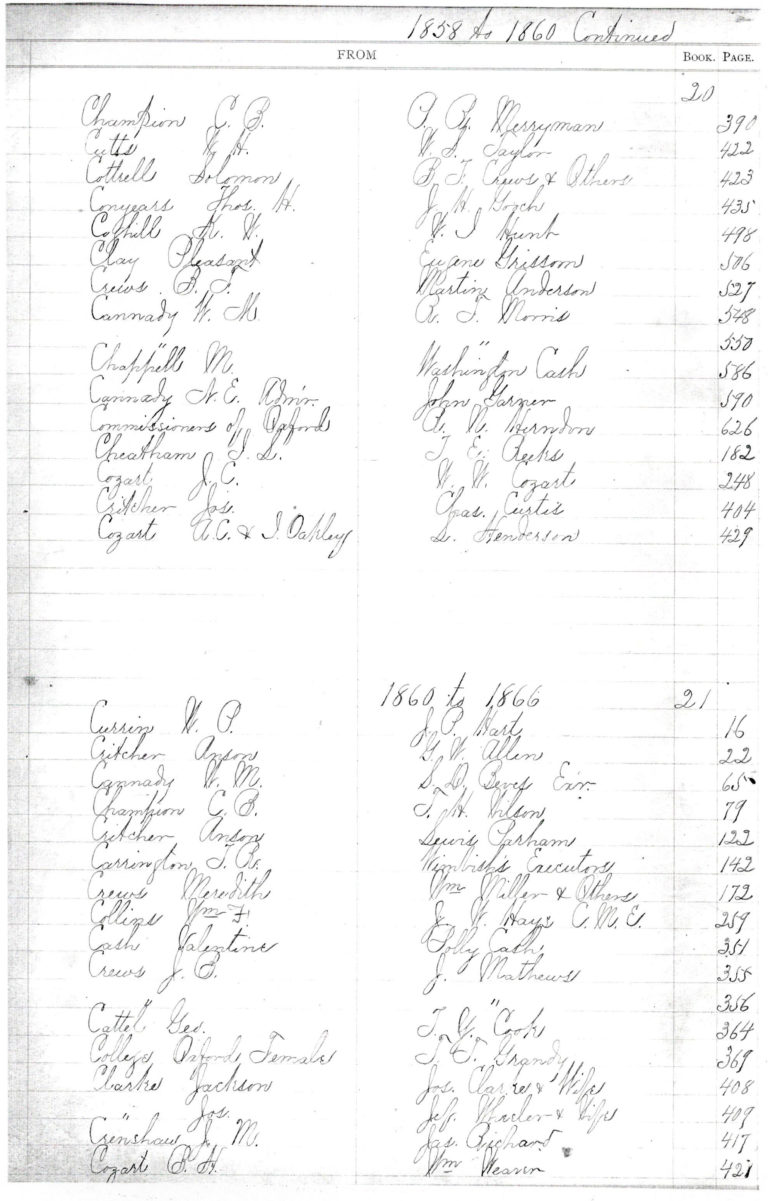 1858 to 1860 Continued
FROM BOOK. PAGE.
20
Champion C. B. P. B. Merryman 390
Cutts W. H. W. S. Taylor 422
Cottrell Solomon B. F. Crews & Others 423
Conyears Thos. H. J. H. Gooch 435
Cothill W. W. J Hunt 498
Clay Pleasant Eugene Grissom 506
Crews B. F. Martin Anderson 527
Cannady W. M. R. S. Morris 548
" " 550
Chappell M. Washington Cash 586
Cannady N. E. Admr. John Garner 590
Commissioners of Oxford R. N. Herndon 626
Cheatham I. L. T. E. Reeks 182
Cozart J. C. W. W. Cozart 248
Critcher Jas. Chas. Curtis 404
Cozart A. C. & I. Oakley L. Henderson 429
1860 to 1866 21
Currin W. P. J. P. Hart 16
Critcher Anson G. W. Allen 22
Cannady W. M. S. D. Exr. 65
Champion C. B. T. H. Wilson 79
Critcher Anson Lewis Parham 122
Carrington T. R. Wimbish's Executors 142
Crews Meredith Wm Miller & Others 172
Collins Wm F. J. W. Hays C. M. E. 259
Cash Valentine Polly Cash 351
Crews J. B. J. Mathews 355
" " 356
Cattel Geo. T. Y. Cook 364
College Oxford Female T. T. Grandy 369
Clarke Jackson Jos. Clarke & Wife 408
" Jos. Jef. Wheeler & Wife 409
Crenshaw J. M. Jas. Richard 417
Cozart B. H. Wm Weaver 421